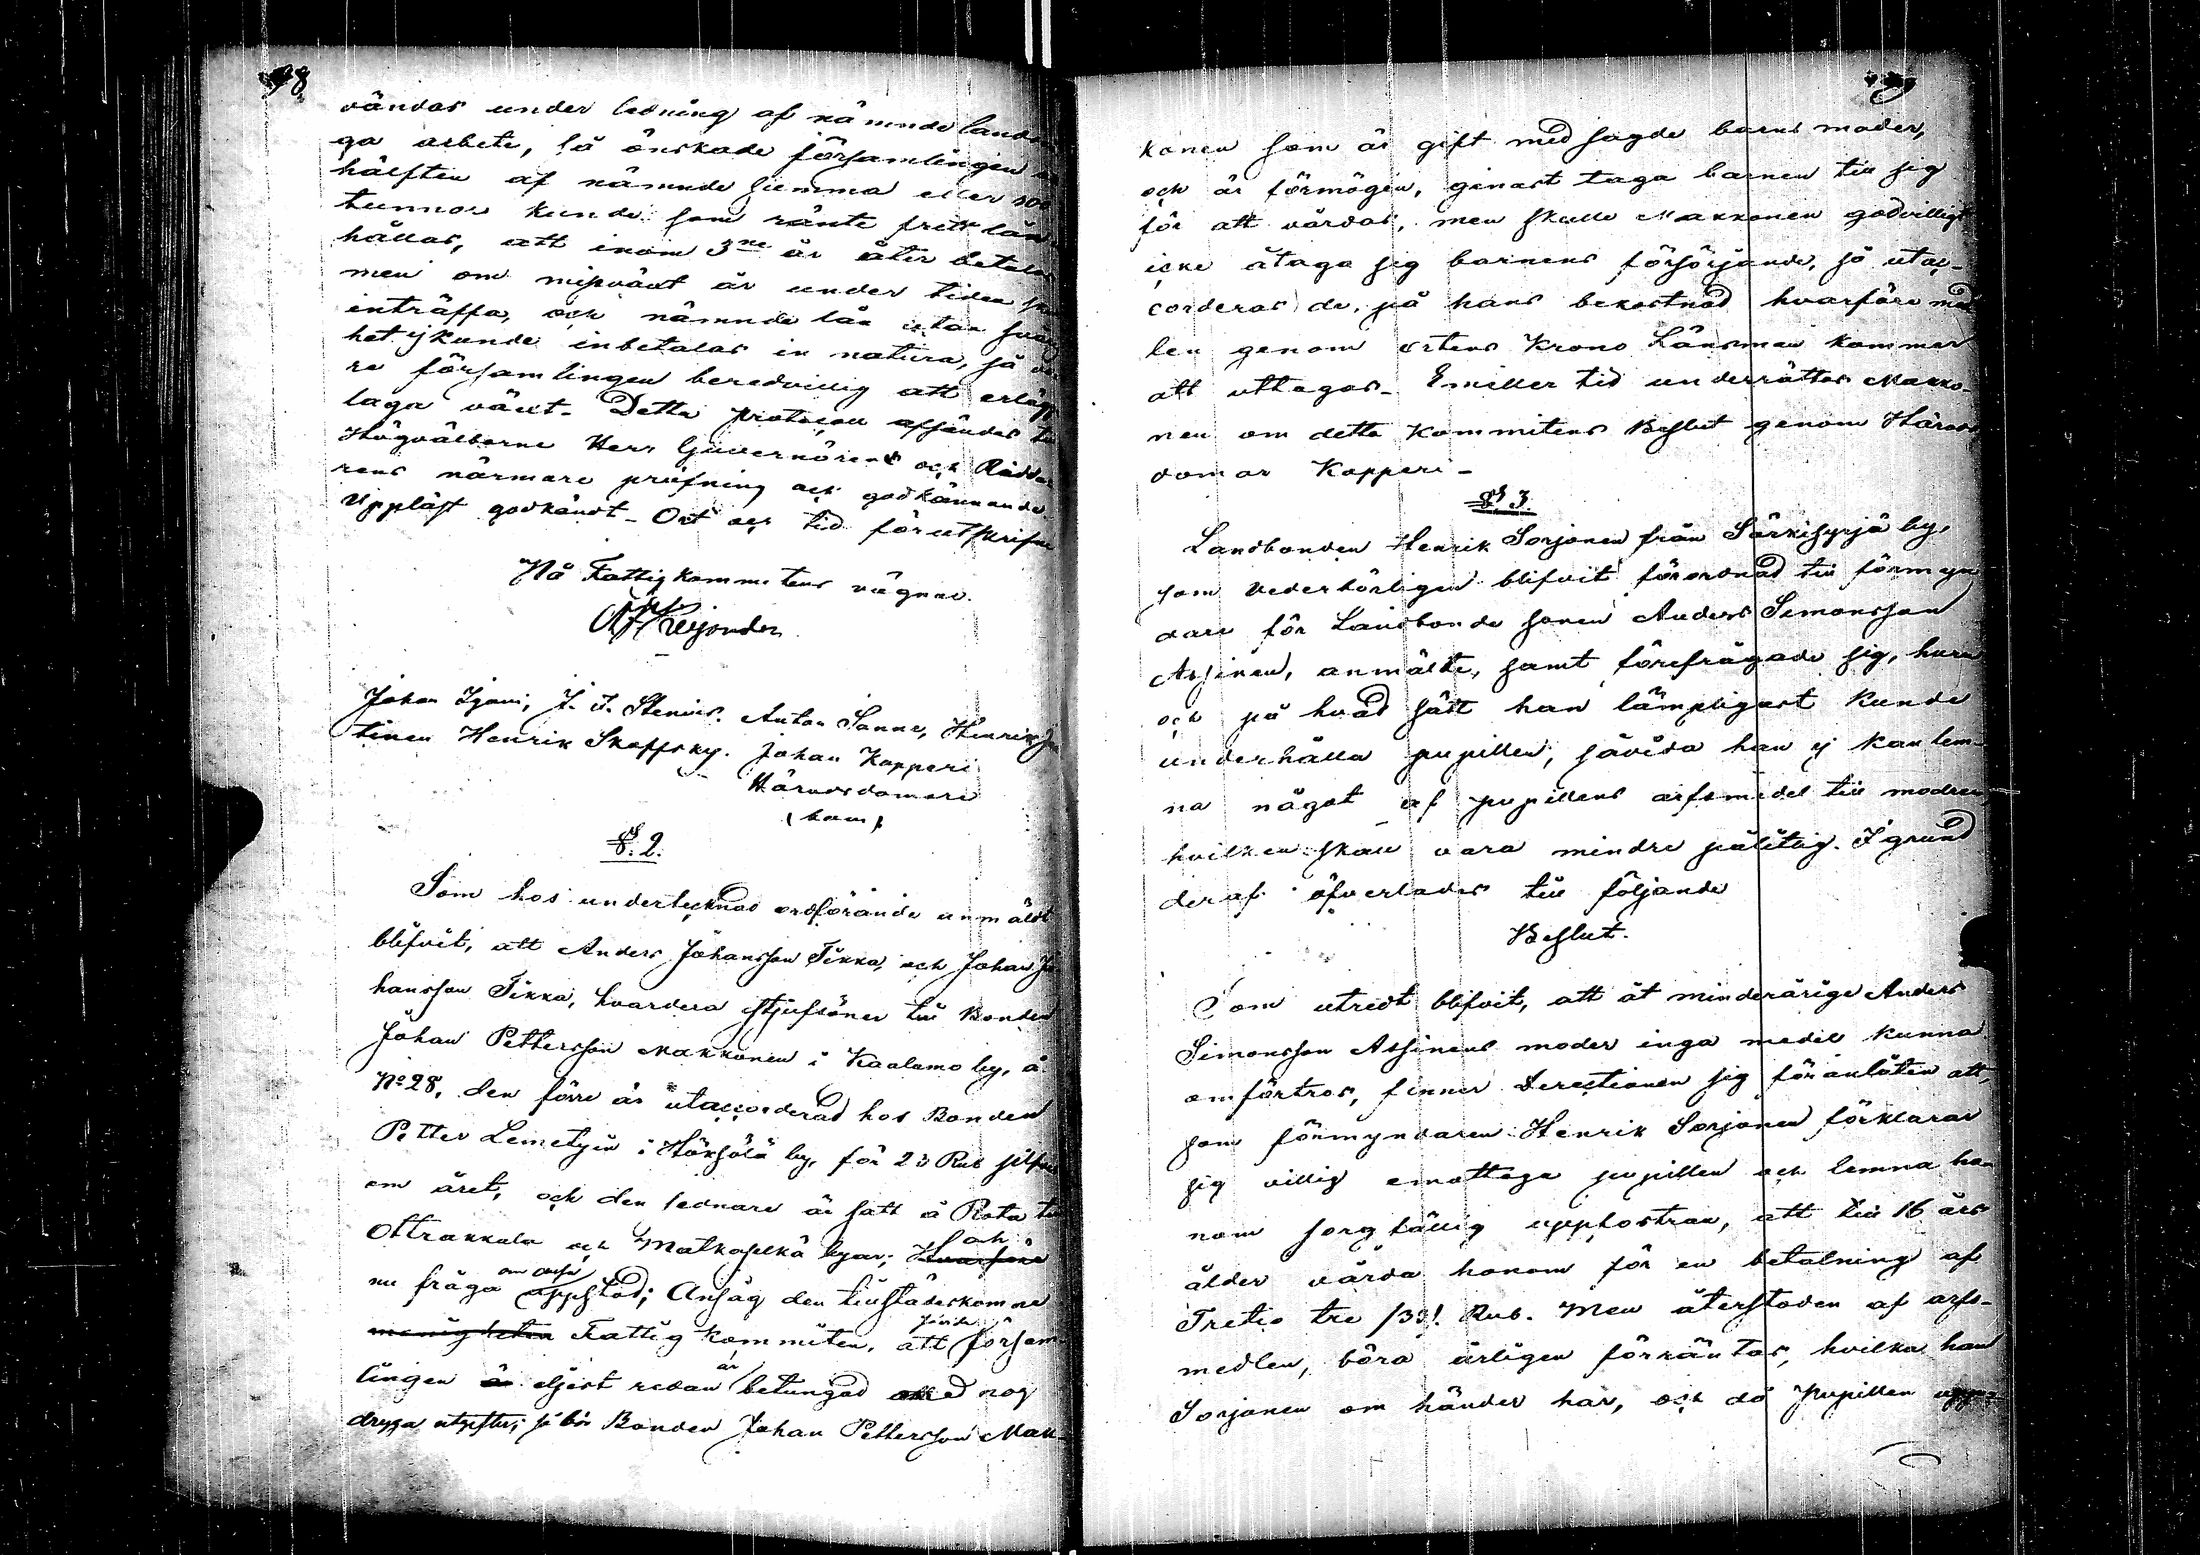 98
vändas under ledning af nämnde lands
ga arbete, så önskade församlingen
hälften af nämnde summa eller 100
tunnor kunde som ränte fritt lån
hållas, att inom 3ne år åter betalas
men om missväxt år under tiden
inträffa, och nämnde lån utan svårig
het ej kunde inbetalas in natura, så
re församlingen beredvillig att erlägga
laga växt. Detta protocoll afsändes till
Högvälborne Herr Guvernörens och Ridda
rens närmare pröfning och godkännande.
Uppläst godkändt. Ort och tid förutskrifne
På Fattigkommitens vägnar.
Johan Igoni, J. F. Stenius. Anton Sanne, Henrik
tinen Henrik Skoffsky. Johan Kopperi
Häradsdomare
§. 2.
Som hos undertecknad ordförande anmäldt
blifvit, att Anders Johansson Tikka, och Johan Jo
hansson Tikka, hvardera styfsöner till Bonden
Johan Pettersson Makkonen i Kaalamo by, å
No 28, den förre är utaccorderad hos Bonden
Petter Lemetyin i Höksölä by, för 23 Rub silfver
om året, och den sednare är satt å Rota till
Otrakkala och Matkaselkä byar; Hvarföre och
nu fråga om deras uppstod; Ansåg den tillstädeskomne
menigheten Fattig kommiten, att såvida försam
lingen är eljest redan är betungad med nog
dryga utgifter, så bör Bonden Johan Pettersson Mak-
konen som är gift med sagde barns moder,
och är förmögen, genast taga barnen till sig
för att vårdas, men skulle Makkonen godvilligt
icke åtaga sig barnens försörjande, så utac-
corderas de, på hans bekostnad hvarföre med
len genom ortens Krono Länsman kommer
att uttagas. Emiller tid underrättas Makko-
nen om detta Kommitens Beslut genom Härads
domar Kopperi-
§ 3.
Landbonden Henrik Sorjonen från Särkisyrjä by,
som vederbörligen blifvit förordnad till förmyn
dare för Landbonde sonen Anders Simonsson
Assinen, anmälte, samt förefrågade sig, huru
och på hvad sätt han lämpligast kunde
underhålla pupillen, såvida han ej kan lem-
na något af pupillens arfsmedel till modren,
hvilken skall vara mindre pålitlig. I grund
deraf öfverlades till följande
Beslut.
Som utredt blifvit, att åt minderårige Anders
Simonsson Assinens moder inga medel kunna
omförtros, finner Derectionen sig föranlåten att,
som förmyndaren Henrik Sorjonen förklarar
sig villig emottaga pupillen och lemna ho
nom sorgfällig uppfostran, att till 16 års
ålder vårda honom för en betalning af
Tretio tre /33/. Rub. Men återstoden af arfs-
medlen, böra årligen förräntas, hvilka han
Sorjonen om händer har, och då Pupillen upp-